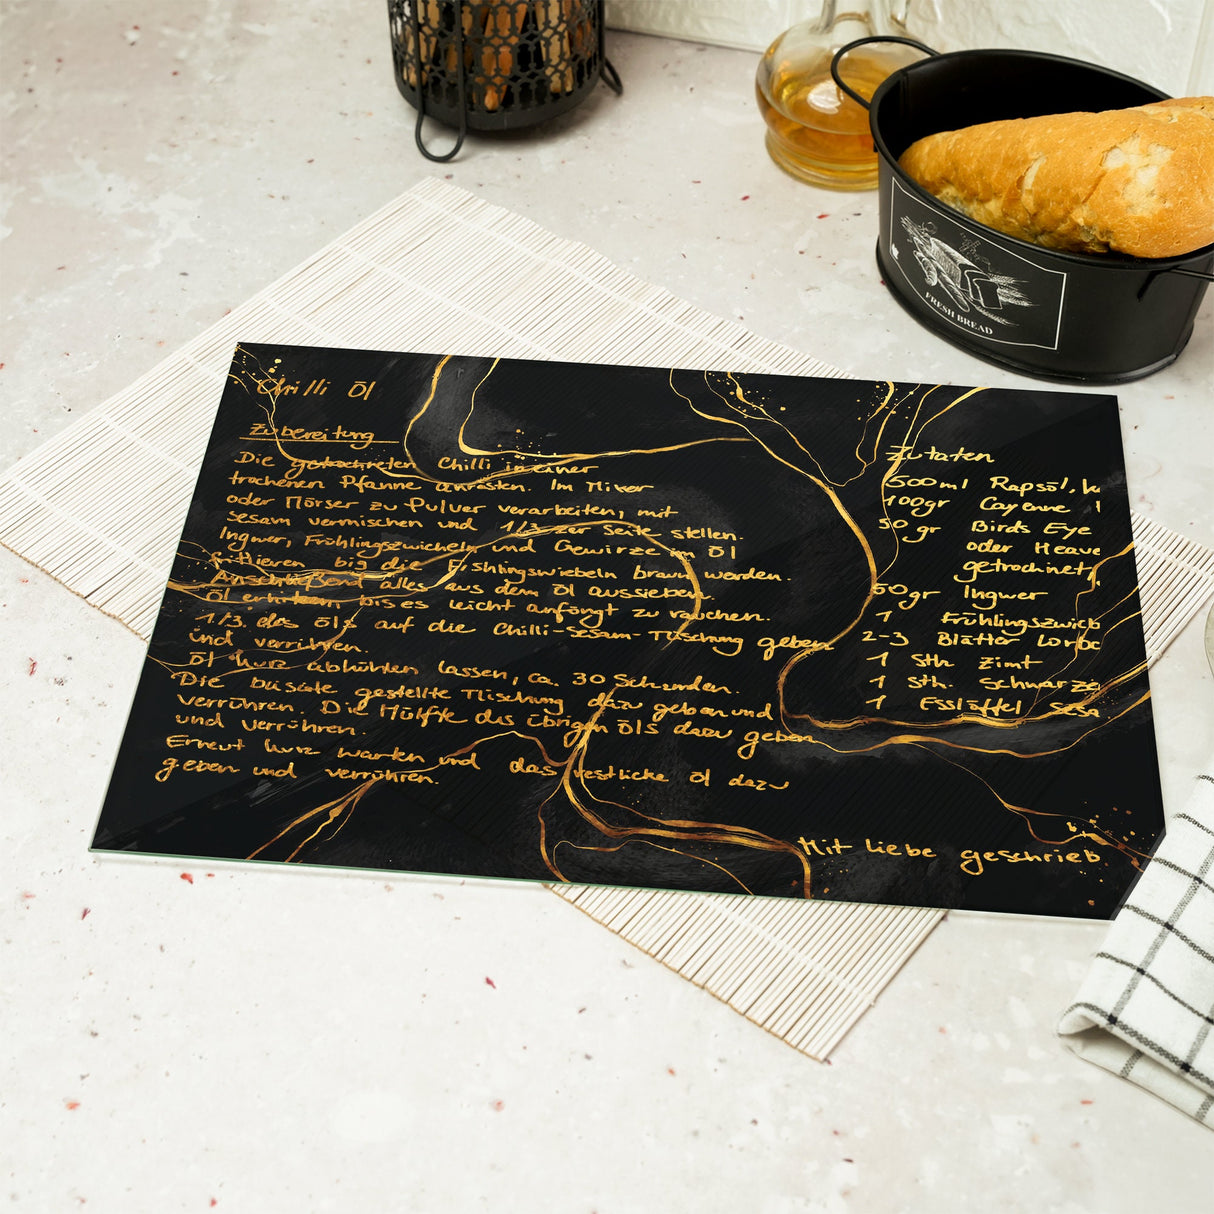 Chilli Öl
Zubereitung
Die getrockneten Chilli in einer
trockenen Pfanne anrösten. Im Mixer
oder Mörser zu Pulver verarbeiten, mit
Sesam vermischen und 1/3 zur Seite stellen.
Ingwer, Frühlingszwiebeln und Gewürze im Öl
frittieren bis die Frühlingswiebeln braun werden.
Anschließend alles aus dem Öl aussieben.
Öl erhitzen bis es leicht anfängt zu rauchen.
1/3 des Öls auf die Chilli-Sesam-Mischung geben
und verrühren.
Öl kurz abkühlen lassen, ca. 30 Sekunden.
Die beiseite gestellte Mischung dazu geben und
verrühren. Die Hälfte des übrigen Öls dazu geben
und verrühren.
Erneut kurz warten und das restliche Öl dazu
geben und verrühren.
Zutaten
500ml Rapsöl,
100gr Cayenne
50gr Birds Eye
oder
getrocknet
50gr Ingwer
1 Frühlingszwieb
2-3 Blätter Lorbe
1 Stk Zimt
1 Stk. Schwarze
1 Esslöffel Sesa
Mit Liebe geschrieb.
FRESH BREAD